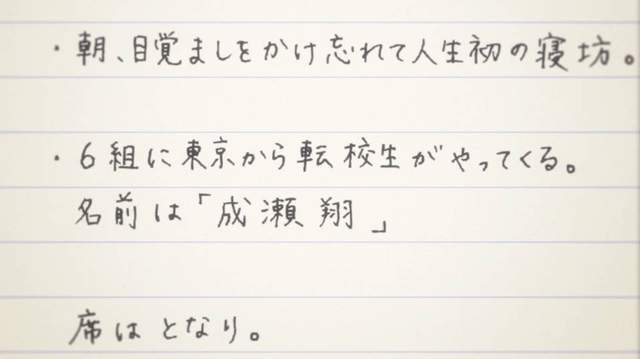 ・朝、目覚ましをかけ忘れて人生初の寝坊。
・6組に東京から転校生がやってくる。
名前は「成瀬 翔」
席はとなり。